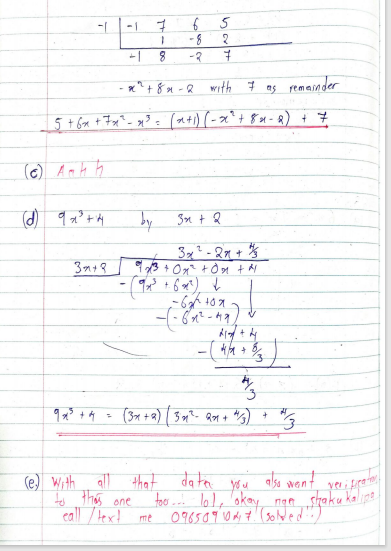 -1 | -1 7 6 5
1 -8 2
-1 8 -2 7
-x² + 8x - 2 with 7 as remainder
5 + 6x + 7x² - x³ = (x+1)(-x² + 8x - 2) + 7
(c)
(d) 9x³ + 4 by 3x + 2
3x² - 2x + 4/3
3x+2 | 9x³ + 0x² + 0x + 4
-(9x³ + 6x²) ↓
-6x² + 0x
-(-6x² - 4x)
4x + 4
-(4x + 8/3)
4/3
9x³ + 4 = (3x+2)(3x² - 2x + 4/3) + 4/3
(e) With all that data you also want
to this one too... lol, okay
call / text me (solved!!)